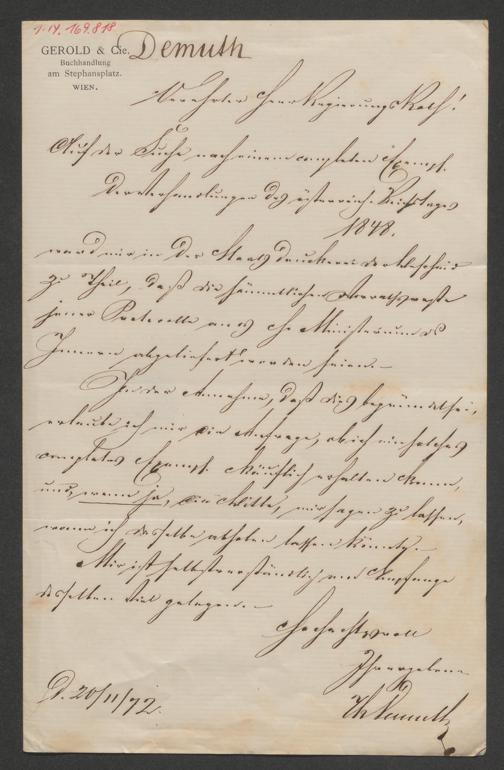 I.N. 169.818
GEROLD & Cie.
Buchhandlung
am Stephansplatz.
WIEN.
Demuth
Verehrter Herr Regierungs Rath!
Auf der Suche nach einem completen Exempl.
der Verhandlungen des österreich. Reichstages
1848.
ward mir in der Staatsdruckerei der Bescheid
zu Theil, daß die sämmtlichen Vorrathsreste
jener Protocolle an das Ministerium des
Innern abgeliefert worden seien. –
In der Annahme, daß dies begründet sei,
erlaube ich mir die Anfrage, ob ich ein solches
completes Exempl. käuflich erhalten kann,
und, wenn ja, die Bitte, mir sagen zu lassen,
wann ich dasselbe abholen lassen könnte. –
Mir ist selbstverständlich am Empfange
desselben viel gelegen. –
Hochachtungsvoll
Ihr ergebener
Demuth
D. 20/11/72.